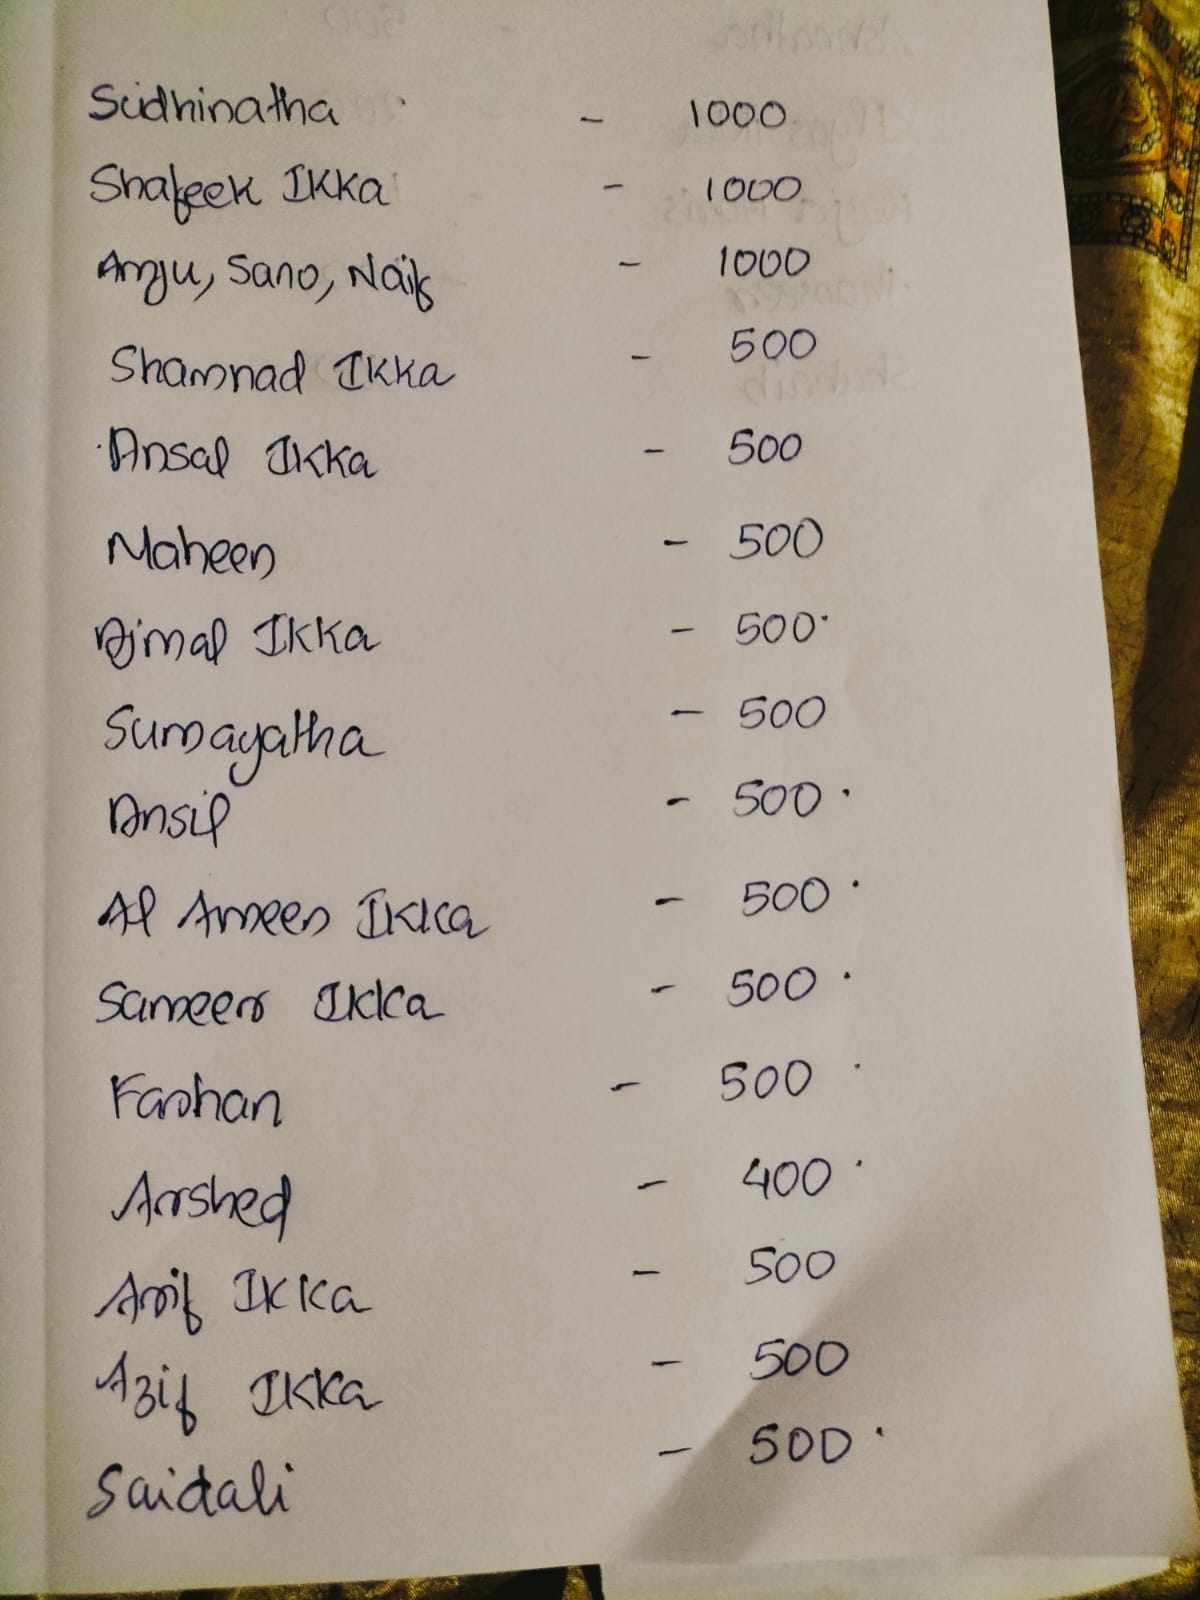 Sudhinatha - 1000
Shafeek Ikka - 1000
Anju, Sano, Naif - 1000
Shamnad Ikka - 500
Ansal Ikka - 500
Maheen - 500
Ajmal Ikka - 500
Sumayatha - 500
Ansil - 500
Al Ameen Ikka - 500
Sameer Ikka - 500
Farhan - 500
Arshed - 400
Arif Ikka - 500
Azif Ikka - 500
Saidali - 500